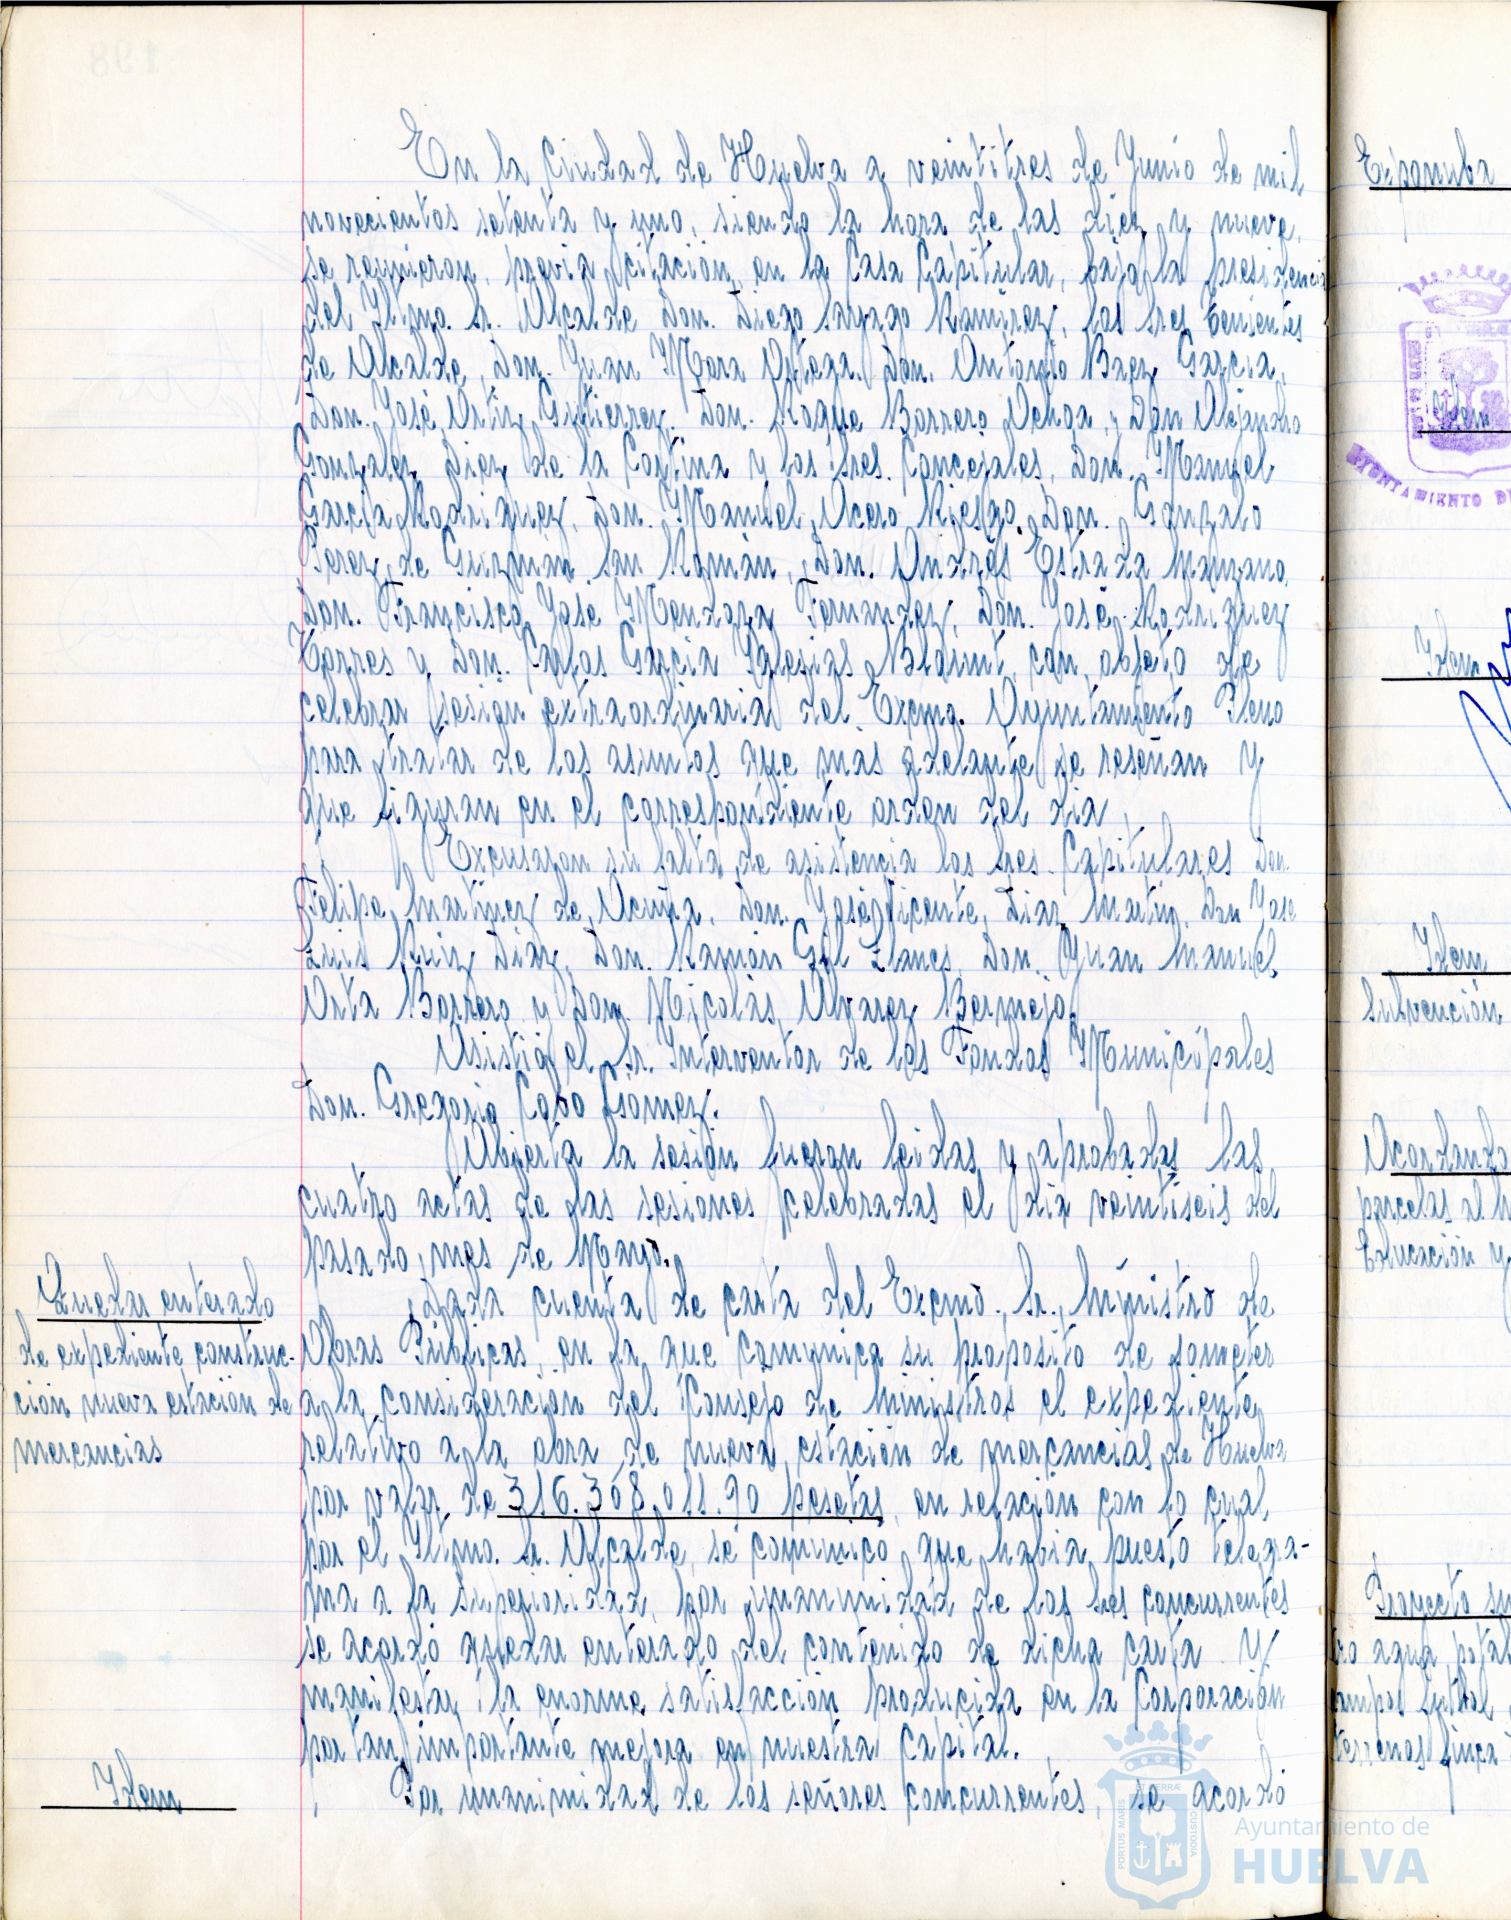 En la Ciudad de Huelva a veintitres de Junio de mil
novecientos setenta y uno, siendo la hora de las diez y nueve,
se reunieron, previa citación, en la Casa Capitular, bajo la presidencia
del Iltmo. Sr. Alcalde Don. Diego Sayago Ramirez, los Sres Tenientes
de Alcalde, Don. Juan Mora Ortega. Don. Antonio Baez Garcia,
Don. José Ortiz Gutierrez. Don. Roque Barrero Ochoa, y Don Alejandro
Gonzalez Diez de la Cortina y los Sres. Concejales, Don. Manuel
Garcia Rodriguez, Don. Manuel Acero Riesgo, Don. Gonzalo
Perez de Guzmán San Román, Don. Andrés Estrada Manzano,
Don. Francisco José Mendoza Fernandez, Don. José Rodriguez
Torres y Don. Carlos Garcia Iglesias con objeto de
celebrar sesión extraordinaria del Excmo. Ayuntamiento Pleno
para tratar de los asuntos que más adelante se reseñan y
que figuran en el correspondiente orden del dia,
Excusaron su falta de asistencia los Sres. Capitulares Don.
Felipe Martinez de Acuña, Don. José Vicente Diaz Martin, Don José
Luis Ruiz Diaz, Don. Ramón Gil Llanes, Don. Juan Manuel
Orta Barrero y Don. Nicolás Alvarez Bermejo.
Asistió el Sr. Interventor de los Fondos Municipales
Don. Gregorio Cobo Gómez.
Abierta la sesión fueron leidas y aprobadas las
cuatro actas de las sesiones celebradas el dia veintiseis del
pasado mes de Mayo.
Quedar enterado
de expediente construc-
ción nueva estación de
mercancias
Dada cuenta de carta del Excmo. Sr. Ministro de
Obras Públicas, en la que comunica su proposito de someter
a la consideración del Consejo de Ministros el expediente
relativo a la obra de nueva estación de mercancias de Huelva
por valor de 316.308.011.90 pesetas, en relación con lo cual
por el Iltmo. Sr. Alcalde, se comunicó que habia puesto telegra-
ma a la Superioridad, por unanimidad de los Sres concurrentes
se acordó quedar enterado del contenido de dicha carta y
manifestar la enorme satisfacción producida en la Corporación
por tan importante mejora en nuestra Capital.
Idem
Por unanimidad de los señores concurrentes, se acordó
Espanuba
Idem
AYUNTAMIENTO DE
Idem
Idem
Subvención
Acordando
parcelas al M
Educación y
Proyecto su
tro agua potab
campos futbol
terrenos finca
PORTUS MARIS ET TERRAE CUSTODIA
Ayuntamiento de
HUELVA